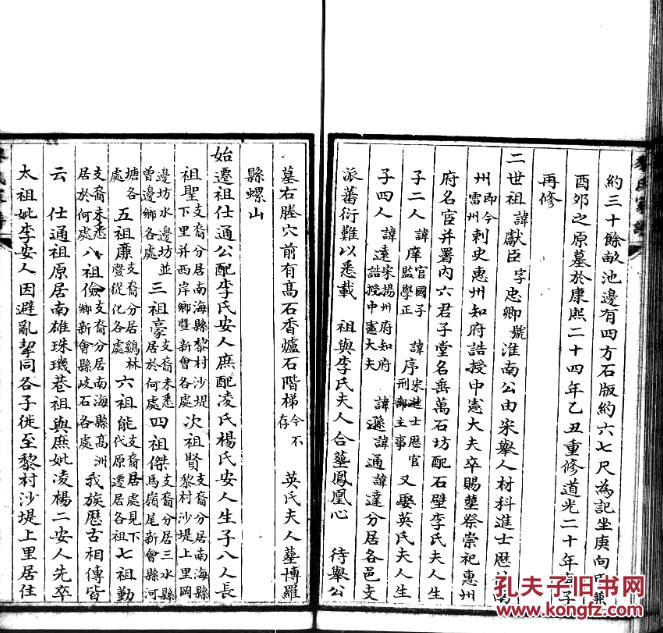 約三十餘畝池邊有四方石版約六七尺為記坐庚向甲兼
酉卯之原墓於康熙二十四年乙丑重修道光二十年庚子
再修
二世祖諱獻臣字忠卿號淮南公由宋舉人材科進士歷
州即今剌史惠州知府誥授中憲大夫卒賜塋祭崇祀惠州
府名官并署內六君子堂名垂萬石坊配石壁李氏夫人生
子二人諱庠官國子監學正 諱序宋進士歷官刑部主事 又娶英氏夫人生
子四人諱逵宋揚州府知府誥授中憲大夫 諱遜諱通諱達分居各邑支
派蕃衍難以悉載 祖與李氏夫人合墓鳳凰心 待舉公
墓右塍穴前有高石香爐石階梯今不存 英氏夫人墓博羅
縣螺山
始遷祖仕通公配李氏安人庶配凌氏楊氏安人生子八人長
祖聖支裔分居南海縣黎村沙堤下里并西岸鄉暨新會各處 次祖賢支裔分居南海縣黎村沙堤上里岡
邊坊水邊坊並曾邊鄉各處 三祖豪支裔未悉居於何處 四祖傑支裔分居三水縣馬嶺尾新會縣河
塘各處 五祖廉支裔分居鷄林暨從化各處 六祖能支裔居處見下代原遷居各祖 七祖勤
支裔未悉居於何處 八祖儉支裔分居南海縣高洲鄉新會縣歧石各處 我族歷古相傳皆
云 仕通祖原居南雄珠璣巷祖與庶妣凌楊二安人先卒
太祖妣李安人因避亂挈同各子徙至黎村沙堤上里居住
孔夫子旧书网
www.kongfz.com